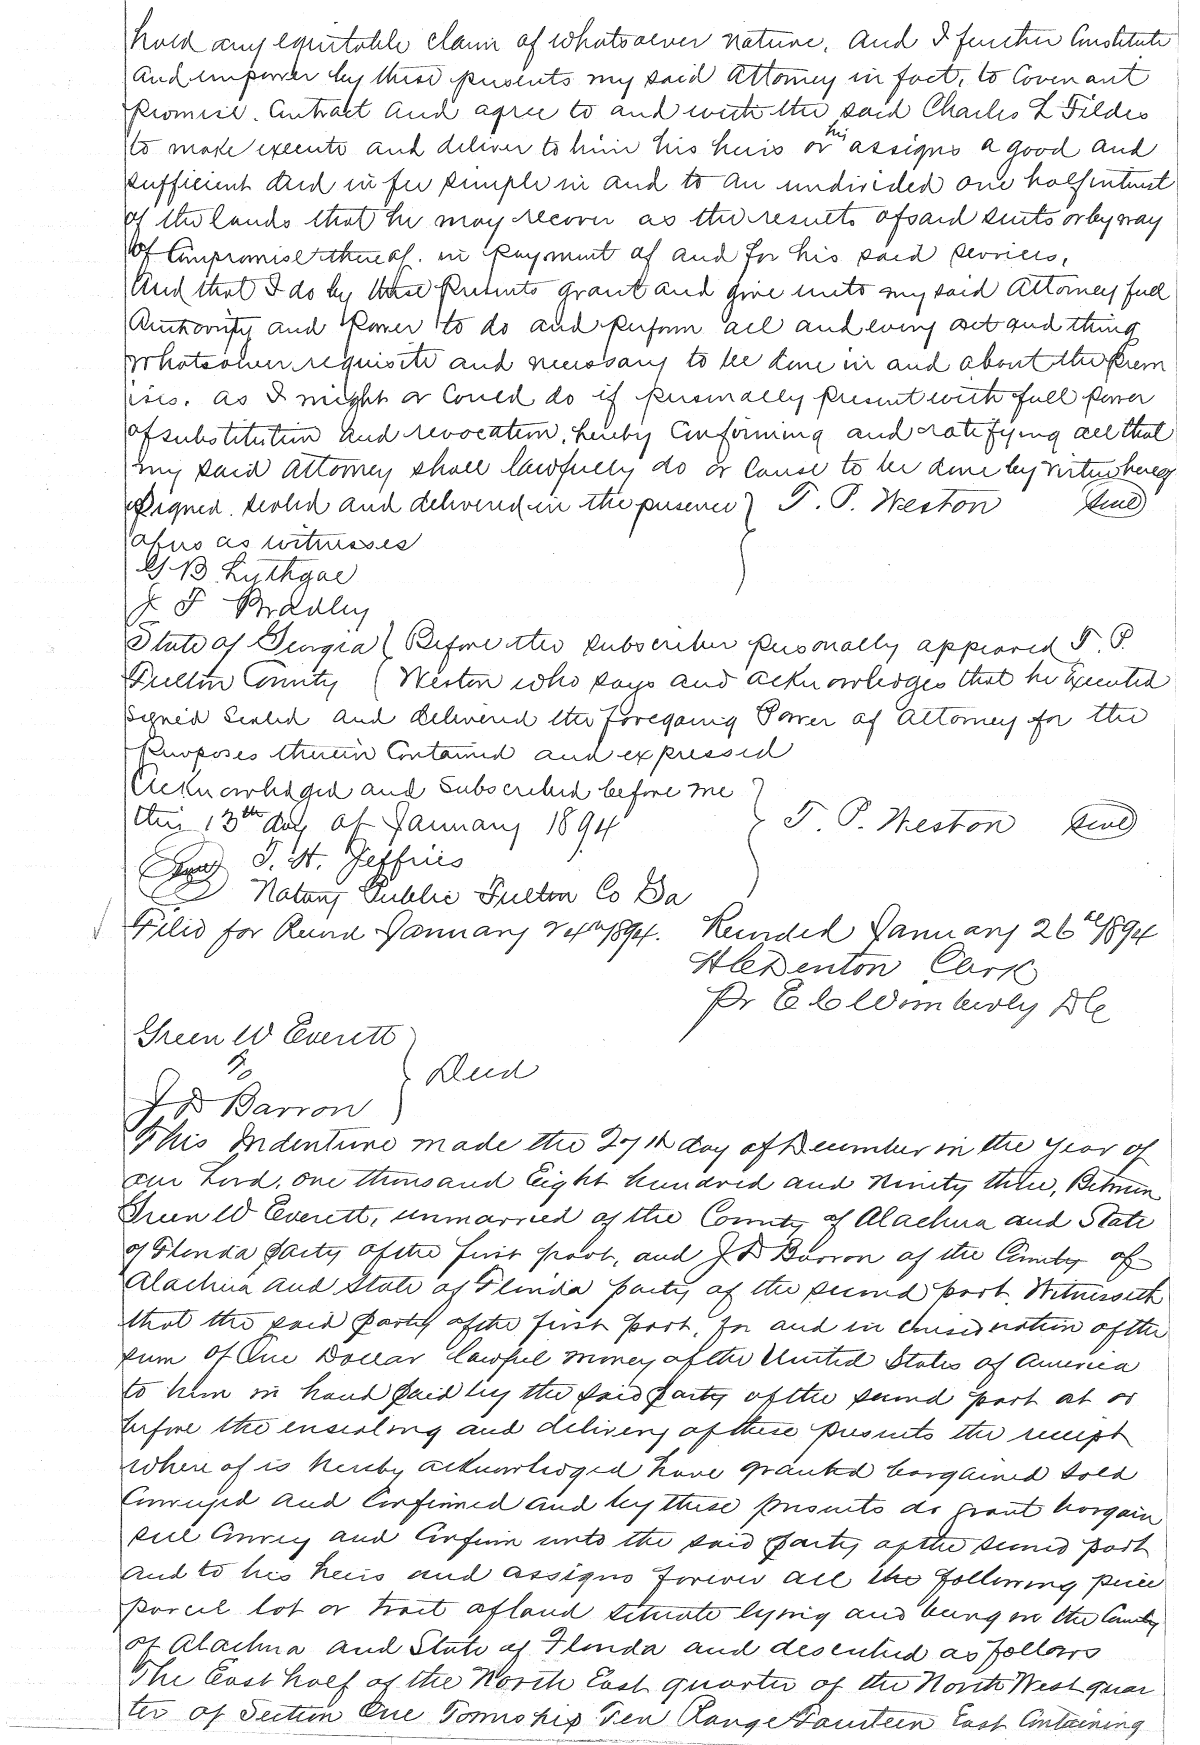 hold any equitable claim of whatsoever nature, And I further Constitute
And empower by these presents my said Attorney in fact, to Covenant
Promise. Contract And agree to and with the said Charles L Fildes
to make execute and deliver to him his heirs or his assigns a good and
sufficient deed in fee simple in and to an undivided one half interest
of the lands that he may recover as the results of said suits or by way
of Compromise thereof. in payment of and for his said services,
And that I do by these Presents grant and give unto my said Attorney full
Authority and Power to do and perform all and every act and thing
whatsoever requisite and necessary to be done in and about the Prem
ises. as I might or Could do if personally present with full power
of substitution and revocation, hereby Confirming and ratifying all that
my said Attorney shall lawfully do or Cause to be done by virtue hereof
Signed. sealed and delivered in the presence } T. P. Weston Seal
of us as witnesses
G B Lythgoe
J F Bradley
State of Georgia ( Before the subscriber personally appeared T. P.
Fulton County ( Weston who says and acknowledges that he Executed
Signed Sealed and delivered the foregoing Power of Attorney for the
Purposes therein Contained and expressed
Acknowledged and Subscribed before me
this 13th day of January 1894 } T. P. Weston Seal
Seal T. H. Jeffries
Notary Public Fulton Co Ga
Filed for Record January 24th 1894. Recorded January 26th 1894
H C Denton Clerk
Pr E C Wimberly DC
Green W Everett
To } Deed
J D Barron
This Indenture made the 27th day of December in the year of
our Lord, one thousand Eight hundred and Ninety three, Between
Green W Everett, unmarried of the County of Alachua and State
of Florida party of the first part, and J D Barron of the County of
Alachua and State of Florida party of the second part, Witnesseth
that the said party of the first part, for and in consideration of the
sum of One Dollar lawful money of the United States of America
to him in hand paid by the said party of the second part at or
before the ensealing and delivery of these presents the receipt
where of is hereby acknowledged have granted bargained sold
Conveyed and Confirmed and by these presents do grant bargain
sell Convey and Confirm unto the said party of the second part
and to his heirs and assigns forever all the following piece
parcel lot or tract of land situate lying and being in the County
of Alachua and State of Florida and described as follows
The East half of the North East quarter of the North West quar
ter of Section One Township Ten Range Fourteen East Containing